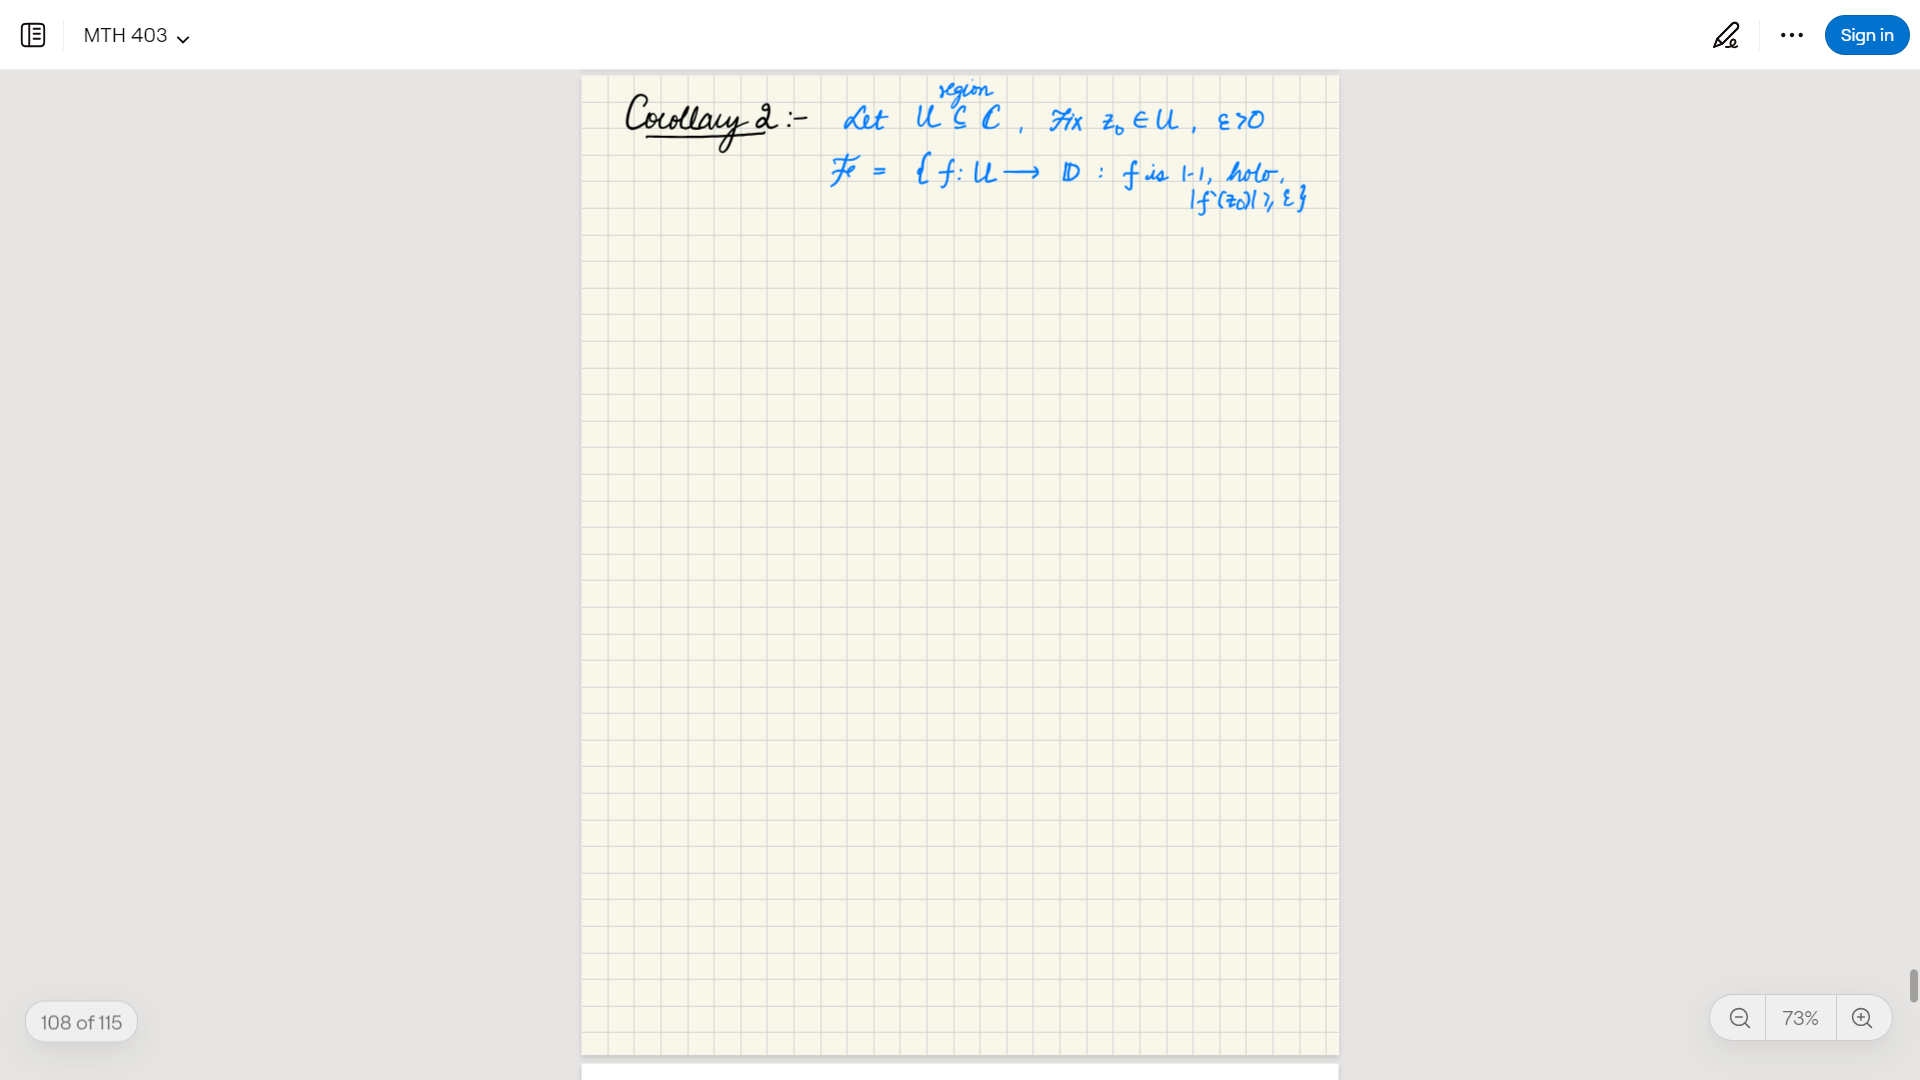 MTH 403
Sign in
region
Corollary 2 :- Let U ⊆ ℂ, Fix z₀ ∈ U, ε>0
ℱ = { f: U ⟶ 𝔻 : f is 1-1, holo,
|f'(z₀)| ≥ ε}
108 of 115
73%